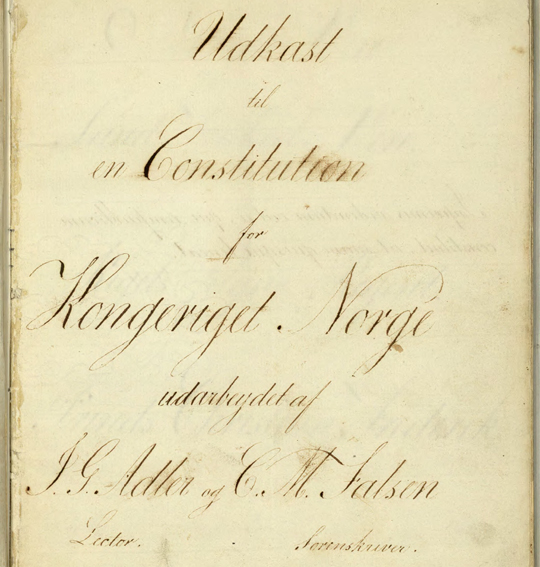 Udkast
til
en Constitution
for
Kongeriget Norge
udarbeydet af
J. G. Adler og C. M. Falsen
Lector. Sorenskriver.